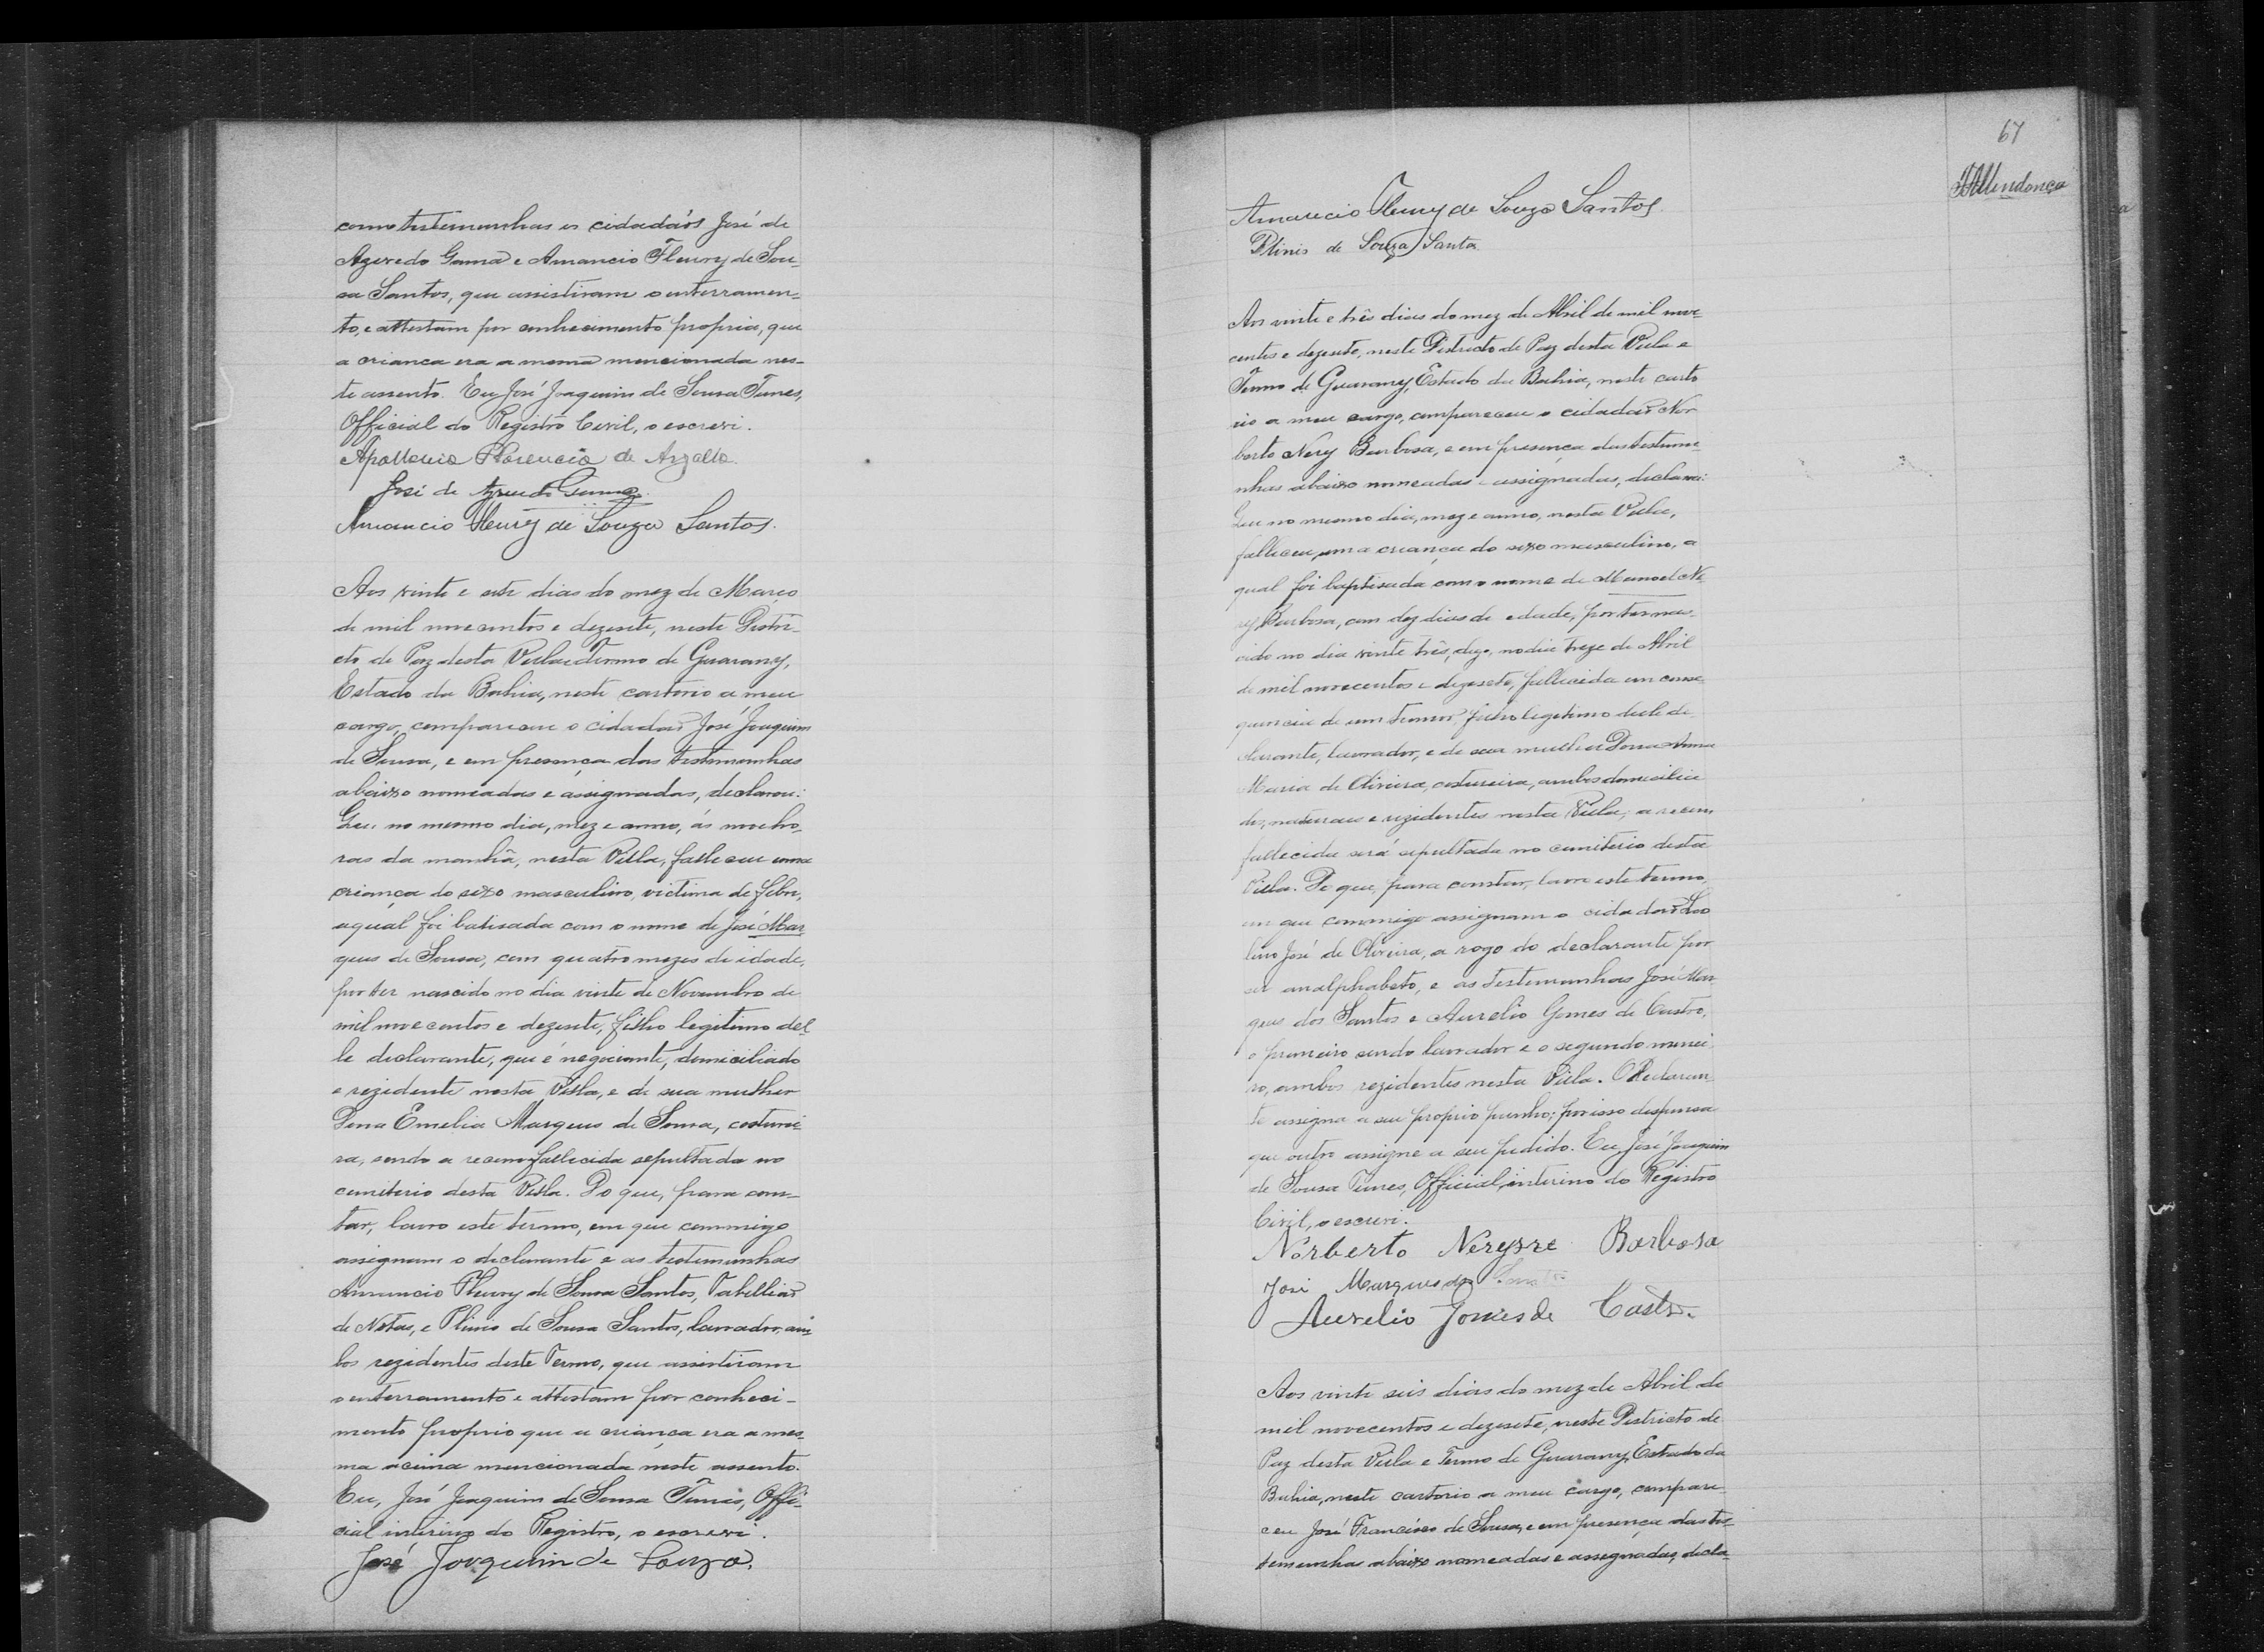 como testemunhas os cidadãos José de
Azevedo Gama e Amancio Fleury de Sou-
sa Santos, que assistiram o enterramen-
to, e attestam por conhecimento proprio, que
a crianca era a mesma mencionada nes-
te assento. Eu José Joaquim de Sousa Tunes,
Official do Registro Civil, o escrevi.
Apollonia Florencia de Argollo.
José de Azevedo Gama
Amancio Fleury de Souza Santos.
Aos vinte e sete dias do mez de Março
de mil novecentos e dezesete, neste Distri-
cto de Paz desta Villa e Termo de Guarany,
Estado da Bahia, neste cartorio a meu
cargo, compareceu o cidadão José Joaquim
de Sousa, e em presença das testemunhas
abaixo nomeadas e assignadas, declarou:
Que, no mesmo dia, mez e anno, ás nove ho-
ras da manhã, nesta Villa, falleceu uma
criança do sexo masculino, victima de febre,
a qual foi batisada com o nome de José Mar
ques de Sousa, com quatro mezes de idade,
por ter nascido no dia vinte de Novembro de
mil novecentos e dezesete, filho legitimo del-
le declarante, que é negociante, domiciliado
e rezidente nesta Villa, e de sua mulher
Dona Emelia Marques de Sousa, costurei-
ra, sendo a recem-fallecida sepultada no
cemiterio desta Villa. Do que, para cons-
tar, lavro este termo, em que commigo
assignam o declarante e as testemunhas
Amancio Fleury de Sousa Santos, Tabellião
de Notas, e Plinio de Sousa Santos, lavrador, am
bos rezidentes deste Termo, que assistiram
o enterramento e attestam por conheci-
mento proprio que a criança era a mes-
ma acima mencionada neste assento.
Eu, José Joaquim de Sousa Tunes, Offi-
cial interino do Registro, o escrevi.
José Joaquim de Souza.
67
Mendonça
Amancio Fleury de Souza Santos.
Plinio de Souza Santos
Aos vinte e três dias do mez de Abril de mil nove-
centos e dezesete, neste Districto de Paz desta Villa e
Termo de Guarany, Estado da Bahia, neste carto
rio a meu cargo, compareceu o cidadão Nor
berto Nery Barbosa, e em presença das testemu-
nhas abaixo nomeadas e assignadas, declarou:
Que no mesmo dia, mez e anno, nesta Villa,
falleceu, uma criança do sexo masculino, a
qual foi baptisada com o nome de Manoel Ne
ry Barbosa, com dez dias de edade, por ter nas-
cido no dia vinte três, digo, no dia treze de Abril
de mil novecentos e dezesete, fallecida em conse
quencia de um tumor, filho legitimo delle de
clarante, lavrador, e de sua mulher Dona Anna
Maria de Oliveira, costureira, ambos domicilia
dos, naturaes e rezidentes nesta Villa; a recem
fallecida será sepultada no cemiterio desta
Villa. Do que, para constar, lavro este termo,
em que commigo assignam o cidadão
lino José de Oliveira, a rogo do declarante por
ser analphabeto, e as testemunhas José Mar
ques dos Santos e Aurelio Gomes de Castro,
o primeiro sendo lavrador e o segundo minei
ro, ambos rezidentes nesta Villa. O Declaran
te assigna a seu proprio punho; por isso dispensa
que outro assigne a seu pedido. Eu, José Joaquim
de Sousa Tunes, Official, interino do Registro
Civil, o escrevi.
Norberto Nerysre Barbosa
José Marques dos Santos
Aurelio Gomes de Castro.
Aos vinte seis dias do mez de Abril de
mil novecentos e dezesete, neste Districto de
Paz desta Villa e Termo de Guarany, Estado da
Bahia, neste cartorio a meu cargo, compare
ceu José Francisco de Sousa, e em presença das tes-
temunhas abaixo nomeadas e assignadas, decla-